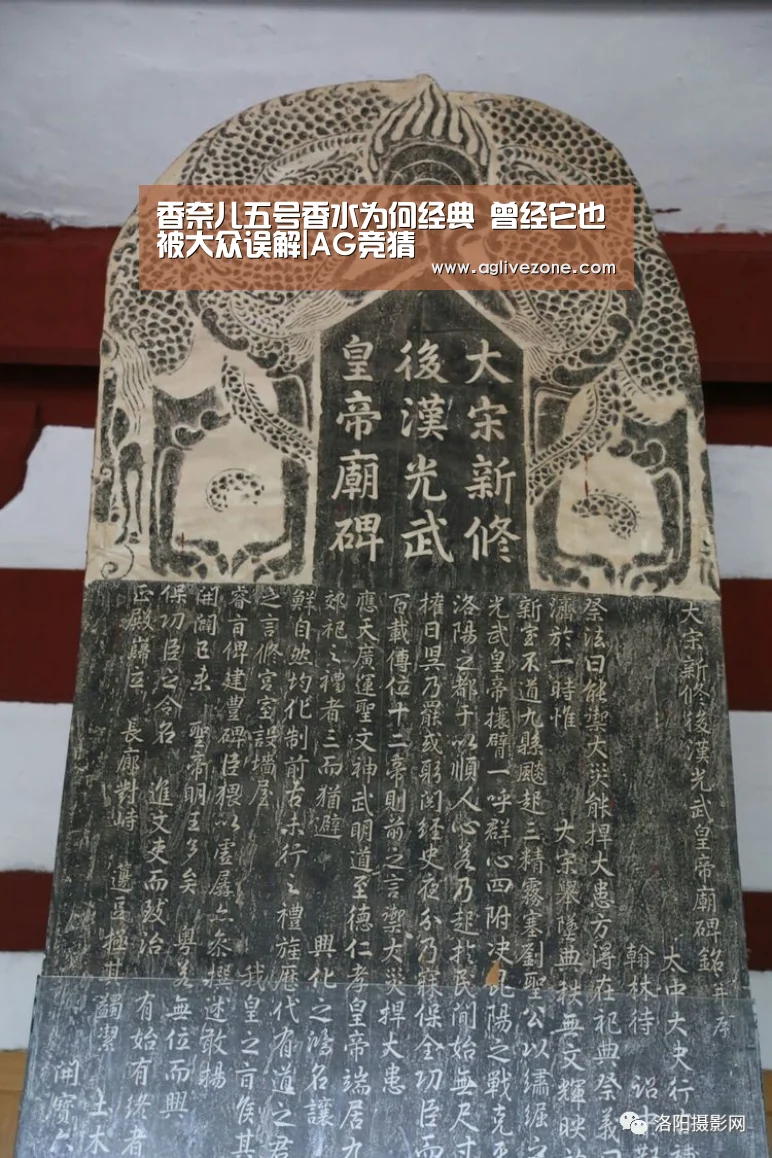 香奈儿五号香水为何经典 曾经它也
被大众误解|AG竞猜
www.aglivezone.com
大宋新修
後漢光武
皇帝廟碑
大宋新修後漢光武皇帝廟碑銘并序
大中大夫行右補
翰林待 詔
祭法曰能禦大災能捍大患方得在祀典祭義曰
濟於一時惟 大宋舉墜典秩無文輝映於
新室不道九縣飈起三精霧塞劉聖公以繡䘿之
光武皇帝攘臂一呼群心四附決昆陽之戰克平
洛陽之都于以順人心若乃起於民間始無尺寸
摧日昃乃罷或躬閱經史夜分乃寐保全功臣而
百載傳位十二帝則前之言禦大災捍大患
應天廣運聖文神武明道至德仁孝皇帝端居九
郊祀之禮者三而猶避 興化之鴻名讓
鮮自然均化制前古未行之禮旌歷代有道之君
之言修宮室設墻屋 我皇之旨俟其
睿旨俾建豐碑臣猥以虛孱令參撰述敢揚
開闢已來 聖帝明王多矣 粵若無位而興
保功臣之令名 進文吏而致治 有始有終者
正殿巋立 長廊對峙 邊豆極其蠲潔 土木
開寶六
洛阳摄影网